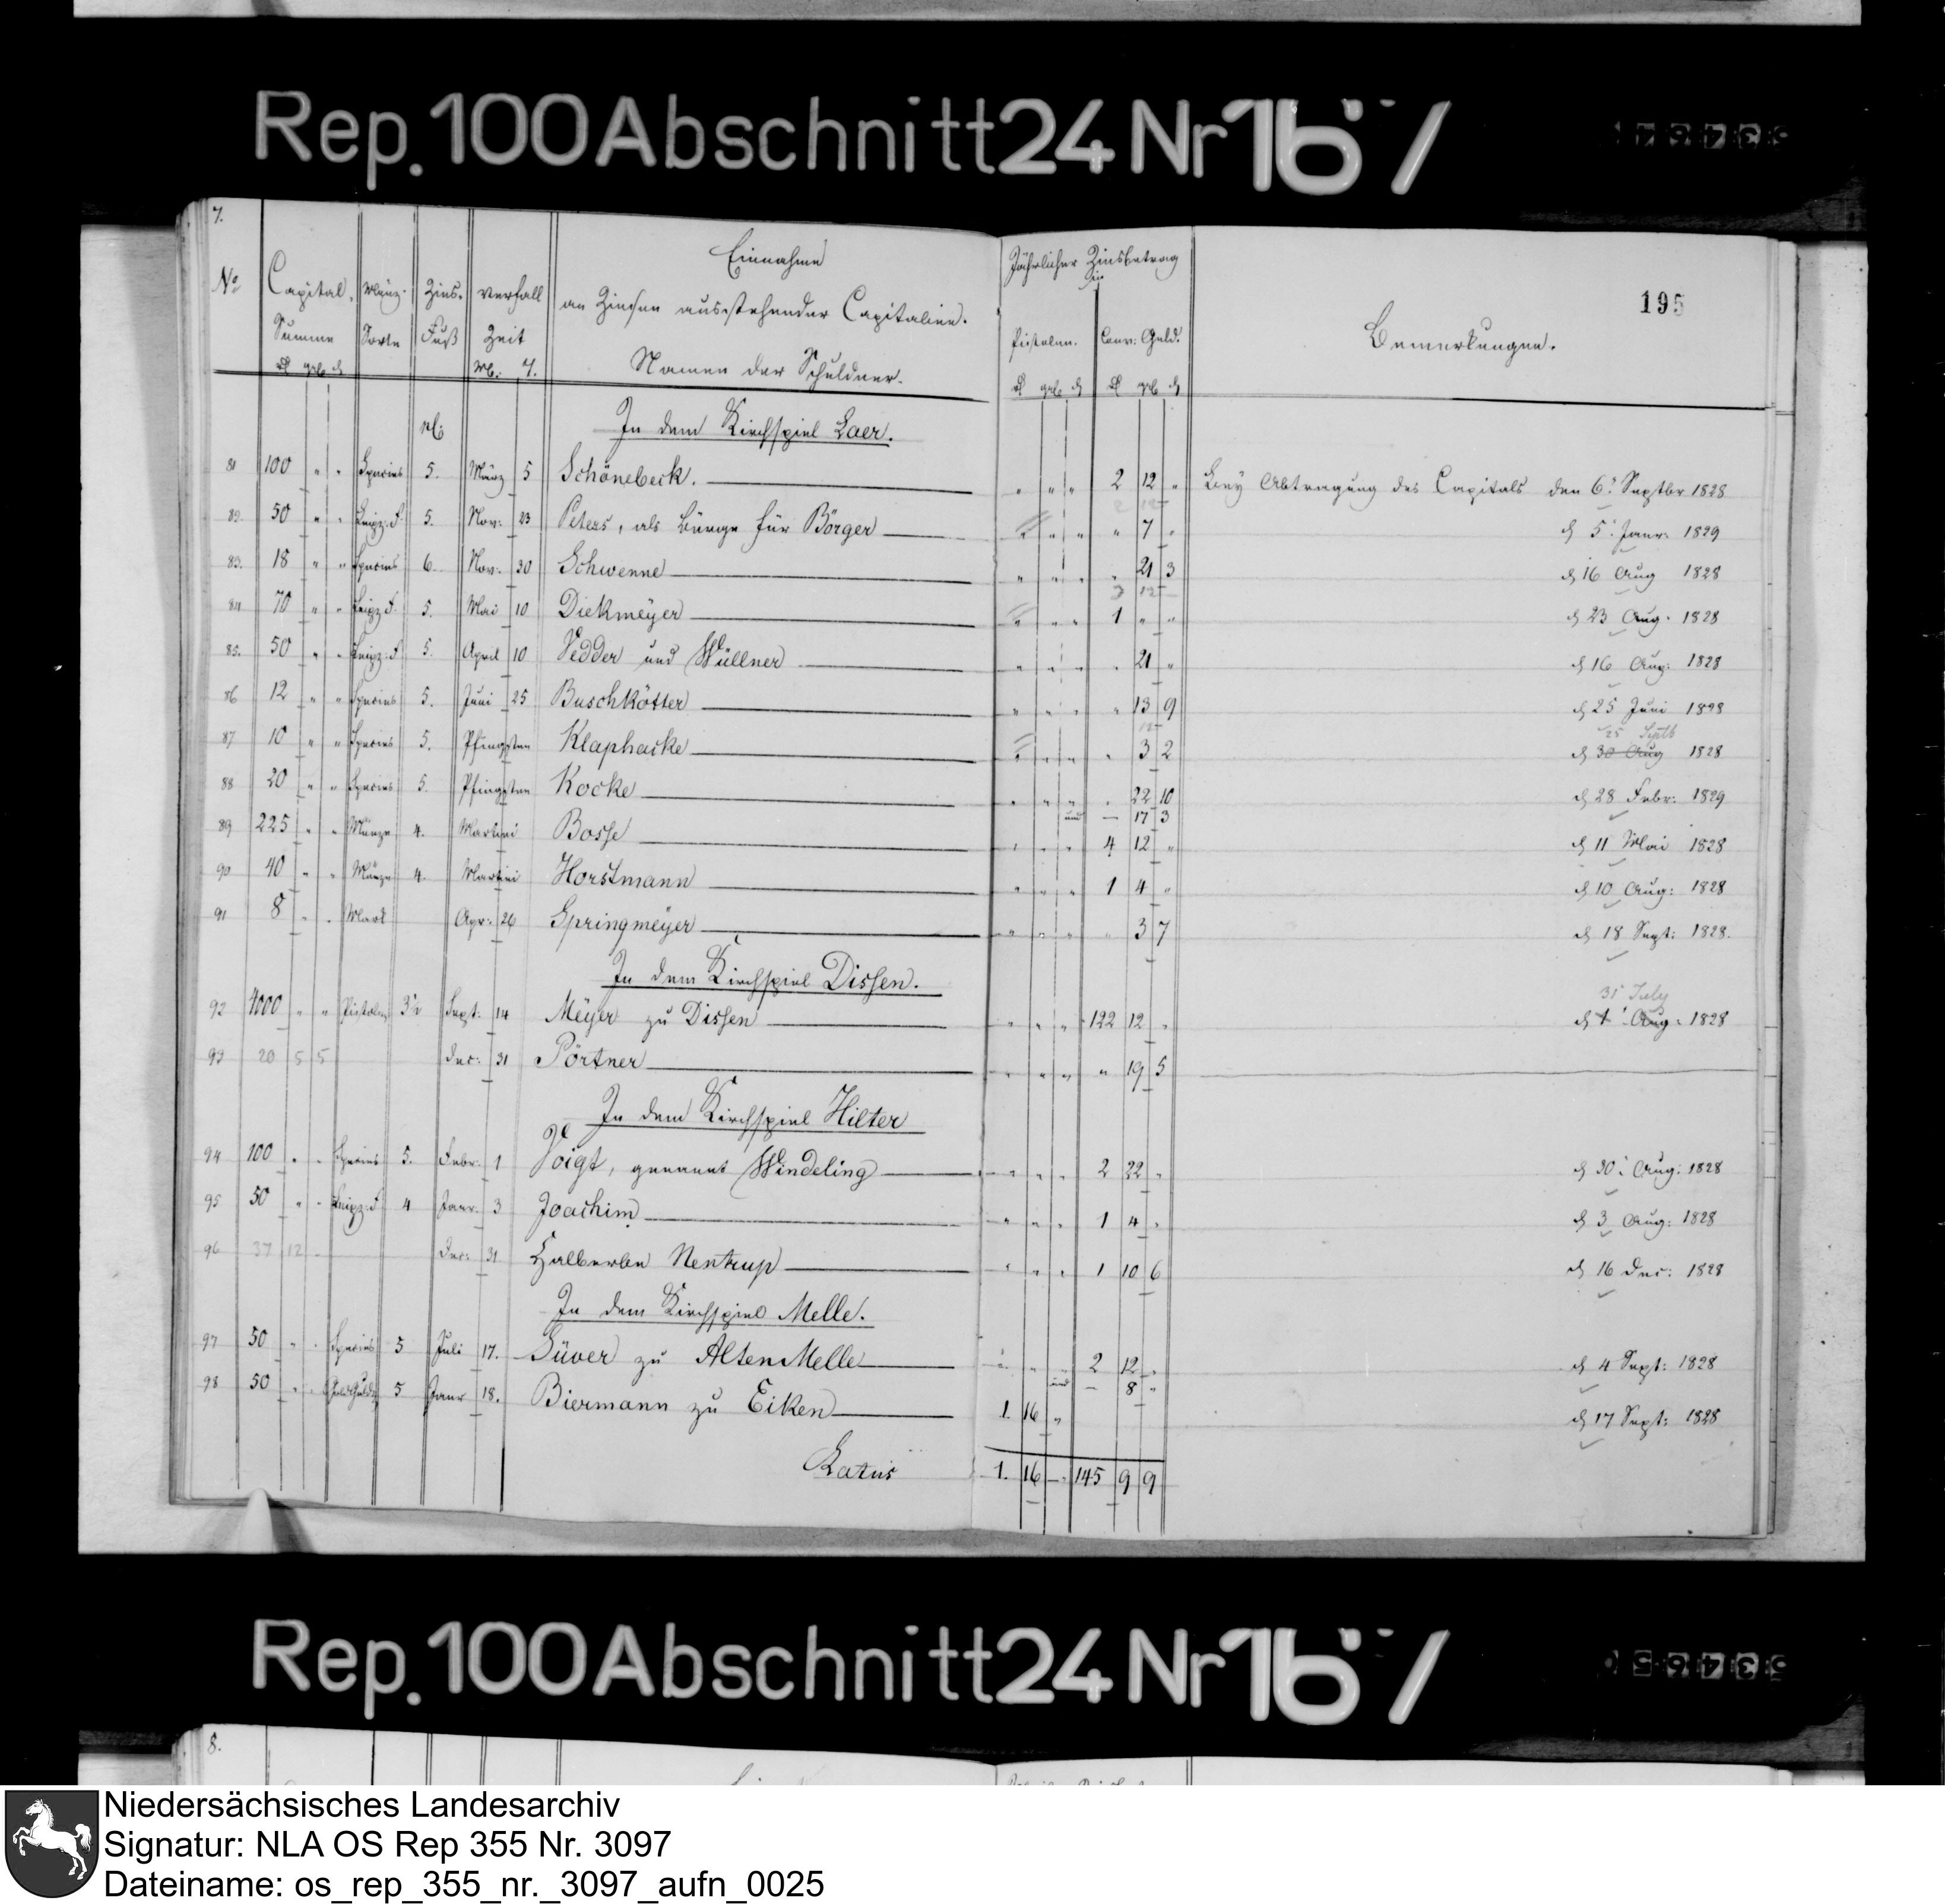 Rep. 100 Abschnitt 24 Nr 167
7.
195
Einnahme
an Zinsen ausstehender Capitalien.
Namen der Schuldner.
No Capital. Summe Münz- Sorte Zins- Fuß Verfall Zeit M. T.
Jährlicher Zinsbetrag in
Pistolen. Conv: Geld.
Bemerkungen.
In dem Kirchspiel Laer.
81 100 " " Species 5. März 5 Schönebeck. " " " 2 12 " Bey Abtragung des Capitals den 6. Septbr 1828
82. 50 " " Leipz: 5. Nov: 23 Peters, als Bürge für Börger " " " " 7 " d 5. Janr: 1829
83. 18 " " Species 6. Nov: 30 Schwenne " " " " 21 3 d 16 Aug 1828
84 70 " " Leipz 5. Mai 10 Diekmeÿer " " " 1 " " d 23 Aug. 1828
85. 50 " " Leipz: 5. April 10 Vedder und Wüllner " " " " 21 " d 16 Aug: 1828
86 12 " " Species 5. Juni 25 Buschkötter " " " " 13 9 d 25 Juni 1828
25 Septb
87 10 " " Species 5. Pfingsten Klaphacke " " " " 3 2 d 30 Aug 1828
88 20 " " Species 5. Pfingsten Kocke " " " " 22 10 d 28 Febr: 1829
und — 17 3
89 225 " " Münze 4. Martini Bosse " " " 4 12 " d 11 Mai 1828
90 40 " " Münze 4. Martini Horstmann " " " 1 4 " d 10 Aug: 1828
91 8 " " Mark Apr: 26 Springmeÿer " " " " 3 7 d 18 Sept: 1828.
In dem Kirchspiel Dissen.
31 July
92 4000 " " Pistolen 3½ Sept: 14 Meÿer zu Dissen " " " 122 12 " d 1 Aug. 1828
93 20 5 5 Dec: 31 Pörtner " " " " 19 5
In dem Kirchspiel Hilter
94 100 " " Species 5. Febr: 1 Voigt, genannt Windeling " " " 2 22 " d 30. Aug: 1828
95 50 " " Leipz: 4 Janr. 3 Joachim " " " 1 4 " d 3 Aug: 1828
96 37 12 " Dec: 31 Halberbe Nentrup " " " 1 10 6 d 16 Dec: 1828
In dem Kirchspiel Melle.
97 50 " " Species 5 Juli 17. Süver zu Alten Melle " " " 2 12 " d 4 Sept: 1828
und — 8 "
98 50 " " 5 Janr 18. Biermann zu Eiken 1. 16 " d 17 Sept: 1828
Latus 1. 16 — 145 9 9
Rep. 100 Abschnitt 24 Nr 167
8.
Niedersächsisches Landesarchiv
Signatur: NLA OS Rep 355 Nr. 3097
Dateiname: os_rep_355_nr._3097_aufn_0025